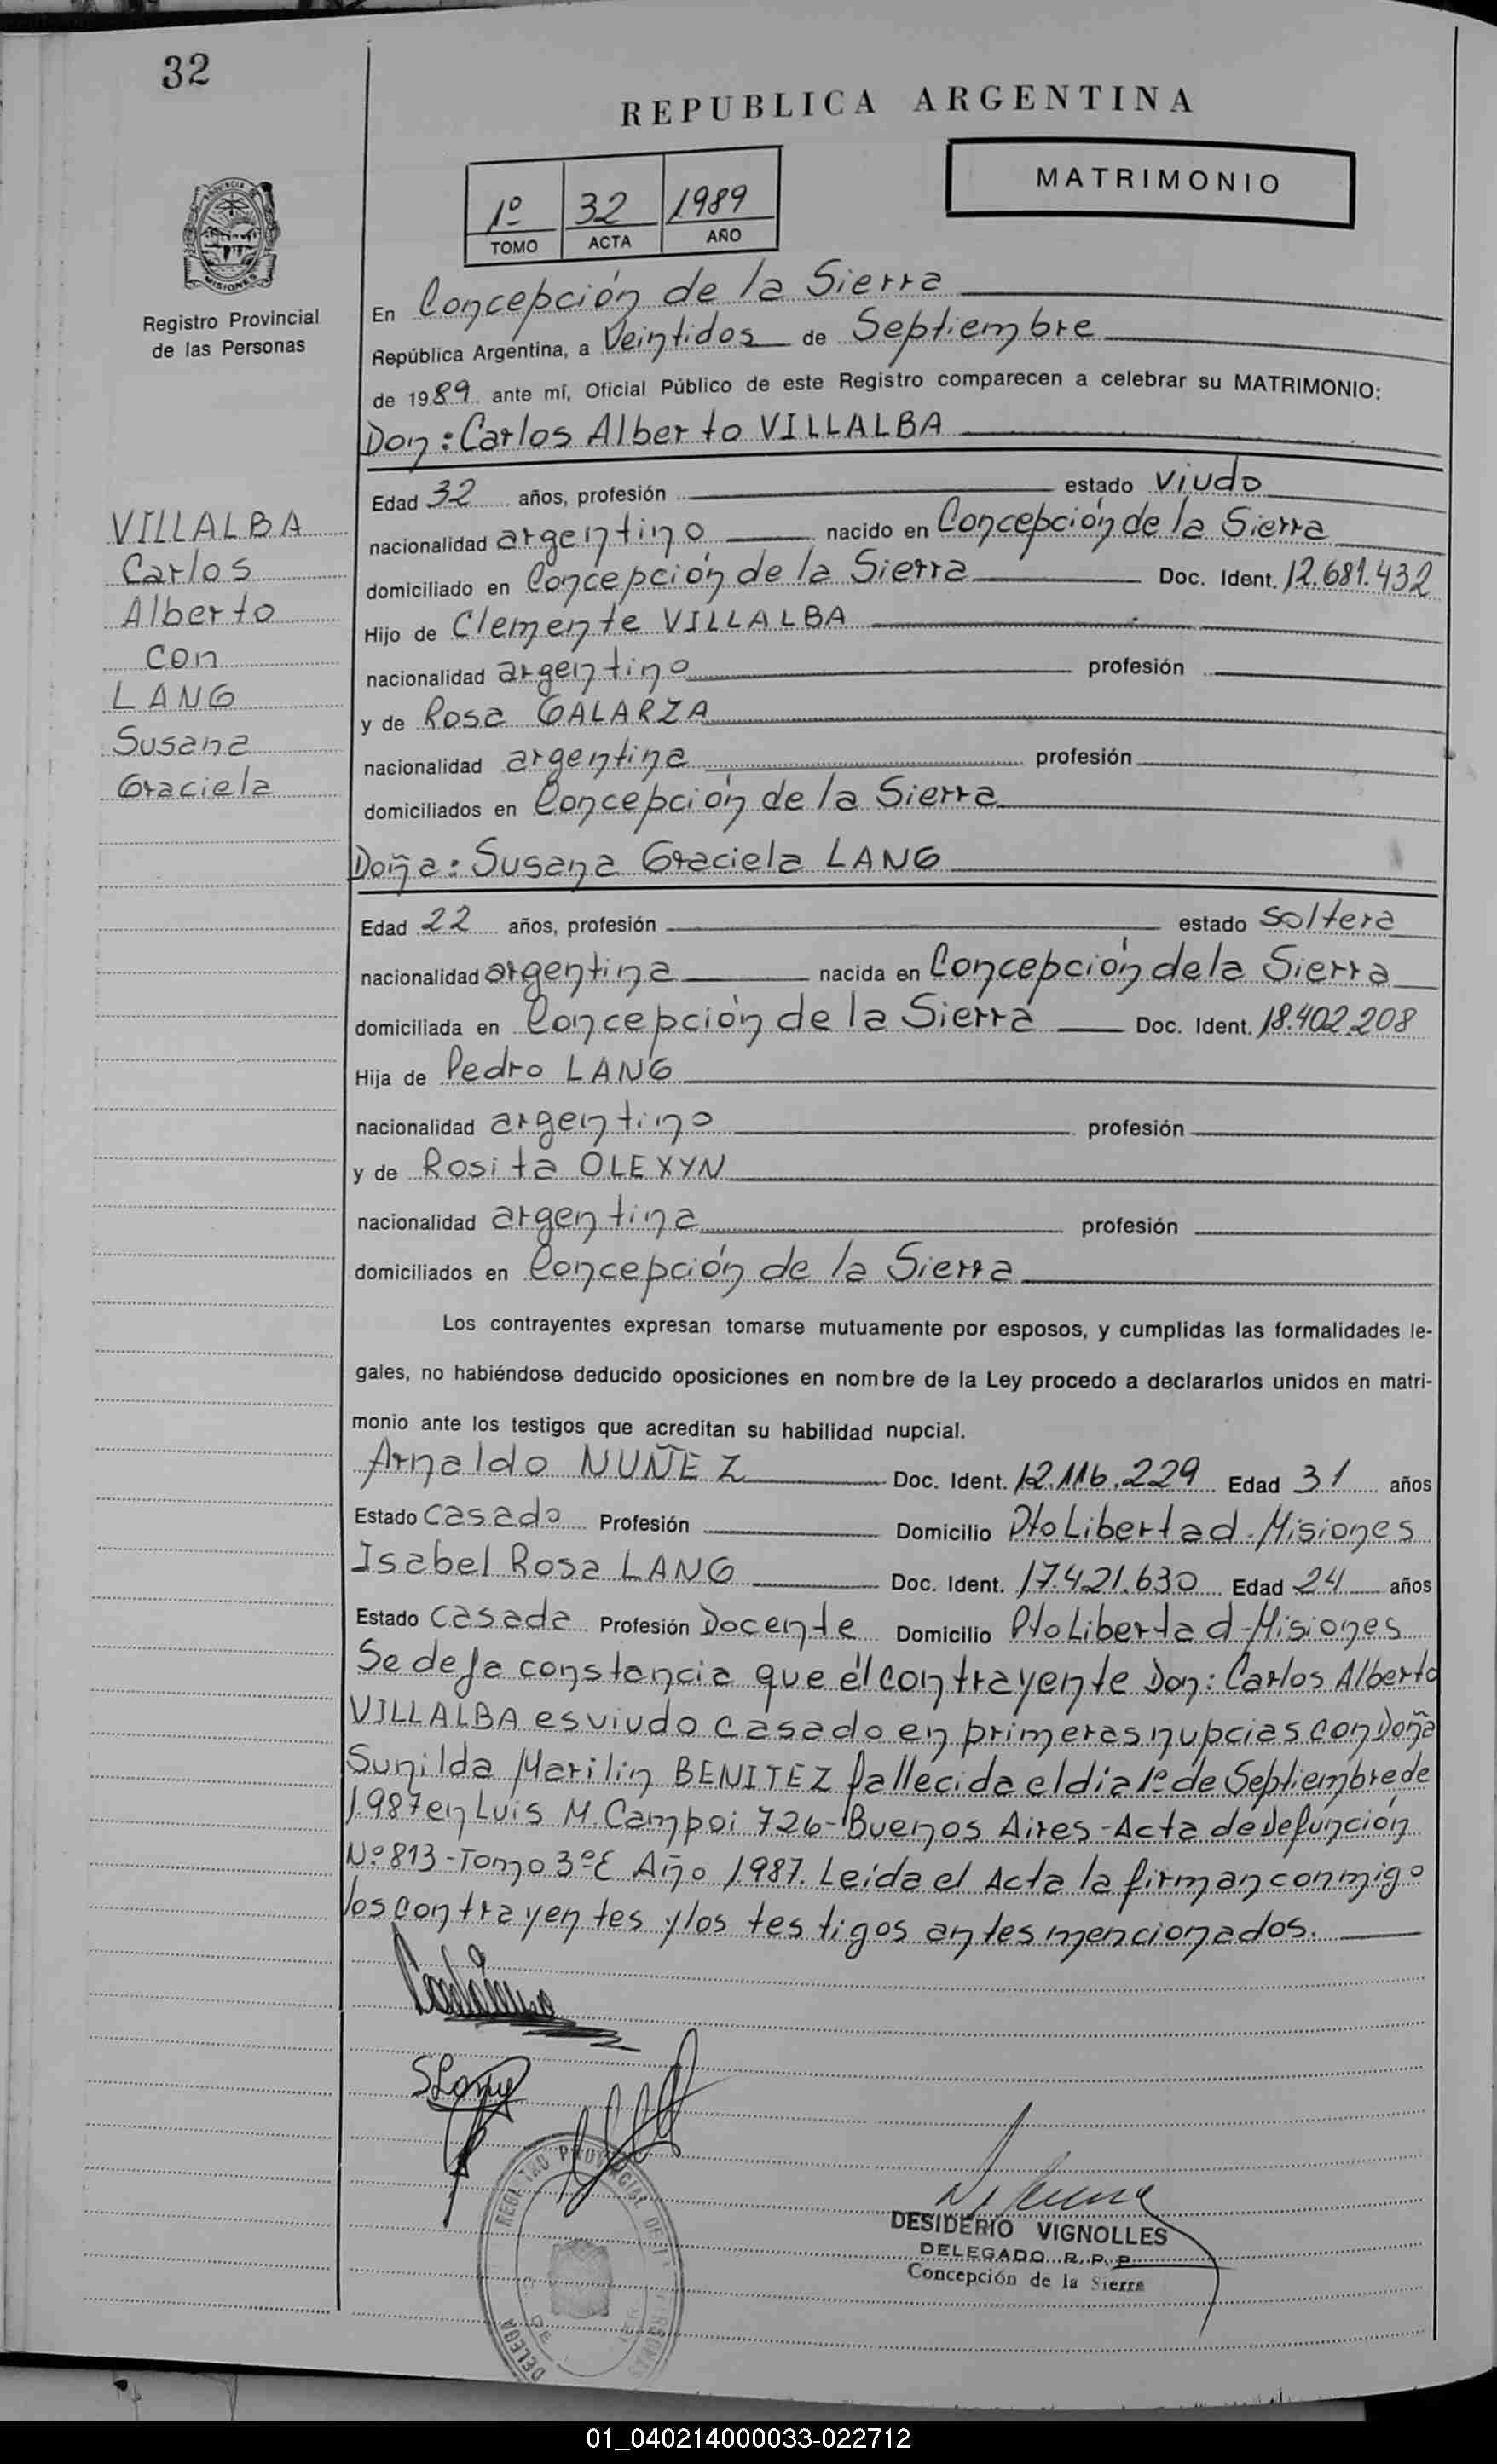 32
REPUBLICA ARGENTINA
MATRIMONIO
1º 32 1989
TOMO ACTA AÑO
PROVINCIA DE
MISIONES
Registro Provincial
de las Personas
En Concepción de la Sierra
República Argentina, a Veintidos de Septiembre
de 1989 ante mí, Oficial Público de este Registro comparecen a celebrar su MATRIMONIO:
Don: Carlos Alberto VILLALBA
Edad 32 años, profesión estado viudo
nacionalidad argentino nacido en Concepción de la Sierra
domiciliado en Concepción de la Sierra Doc. Ident. 12.681.432
Hijo de Clemente VILLALBA
nacionalidad argentino profesión
y de Rosa GALARZA
nacionalidad argentina profesión
domiciliados en Concepción de la Sierra
Doña: Susana Graciela LANG
Edad 22 años, profesión estado soltera
nacionalidad argentina nacida en Concepción de la Sierra
domiciliada en Concepción de la Sierra Doc. Ident. 18.402.208
Hija de Pedro LANG
nacionalidad argentino profesión
y de Rosita OLEXYN
nacionalidad argentina profesión
domiciliados en Concepción de la Sierra
VILLALBA
Carlos
Alberto
con
LANG
Susana
Graciela
Los contrayentes expresan tomarse mutuamente por esposos, y cumplidas las formalidades le-
gales, no habiéndose deducido oposiciones en nombre de la Ley procedo a declararlos unidos en matri-
monio ante los testigos que acreditan su habilidad nupcial.
Arnaldo NUÑEZ Doc. Ident. 12.116.229 Edad 31 años
Estado casado Profesión Domicilio Pto Libertad-Misiones
Isabel Rosa LANG Doc. Ident. 17.421.630 Edad 24 años
Estado casada Profesión Docente Domicilio Pto Libertad-Misiones
Se deja constancia que él contrayente Don: Carlos Alberto
VILLALBA es viudo casado en primeras nupcias con Doña
Sunilda Marilin BENITEZ fallecida el dia 1º de Septiembre de
1987 en Luis M. Campoi 726-Buenos Aires-Acta de Defunción
Nº 813-Tomo 3ºE Año 1987. Leída el Acta la firman conmigo
los contrayentes y los testigos antes mencionados.
SLang
REGISTRO PROVINCIAL DE
DELEGA
DESIDERIO VIGNOLLES
DELEGADO R. P. P.
Concepción de la Sierra
01_040214000033-022712